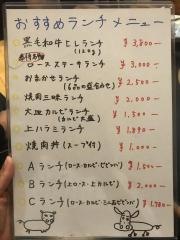 おすすめランチメニュー
黒毛和牛ヒレランチ ¥3,800-
(120g)
ロースステーキランチ ¥3,000-
おまかせランチ ¥2,500-
(6品の盛合わせ)
焼肉三昧ランチ ¥2,000-
大皿カルビランチ ¥1,500-
(カルビ大盛)
上ハラミランチ ¥1,890-
焼肉丼(スープ付) ¥1,000-
Aランチ(ロース・カルビ・ビビンバ) ¥1,500-
Bランチ(上ロース・上カルビ) ¥2,000-
Cランチ(ロース・カルビ・ミニ石ビビンバ) ¥1,780-